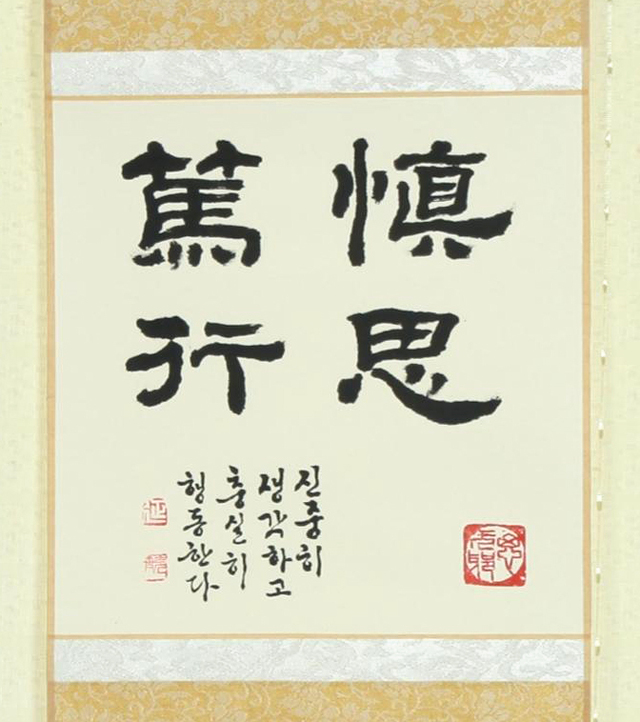 慎思
篤行
진중히
생각하고
충실히
행동한다